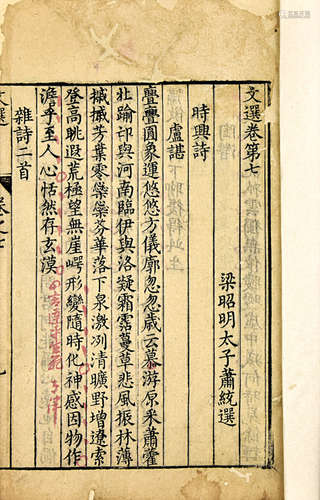 文選卷第七
梁昭明太子蕭統選
時興詩
盧諶
亹亹圓象運悠悠方儀廓忽忽歲云暮游原采蕭藿
北踰邙與河南臨伊與洛凝霜霑蔓草悲風振林薄
摵摵芳葉零橤橤芬華落下泉激冽清曠野增遼索
登高眺遐荒極望無崖崿形變隨時化神感因物作
澹乎至人心恬然存玄漠
雜詩二首